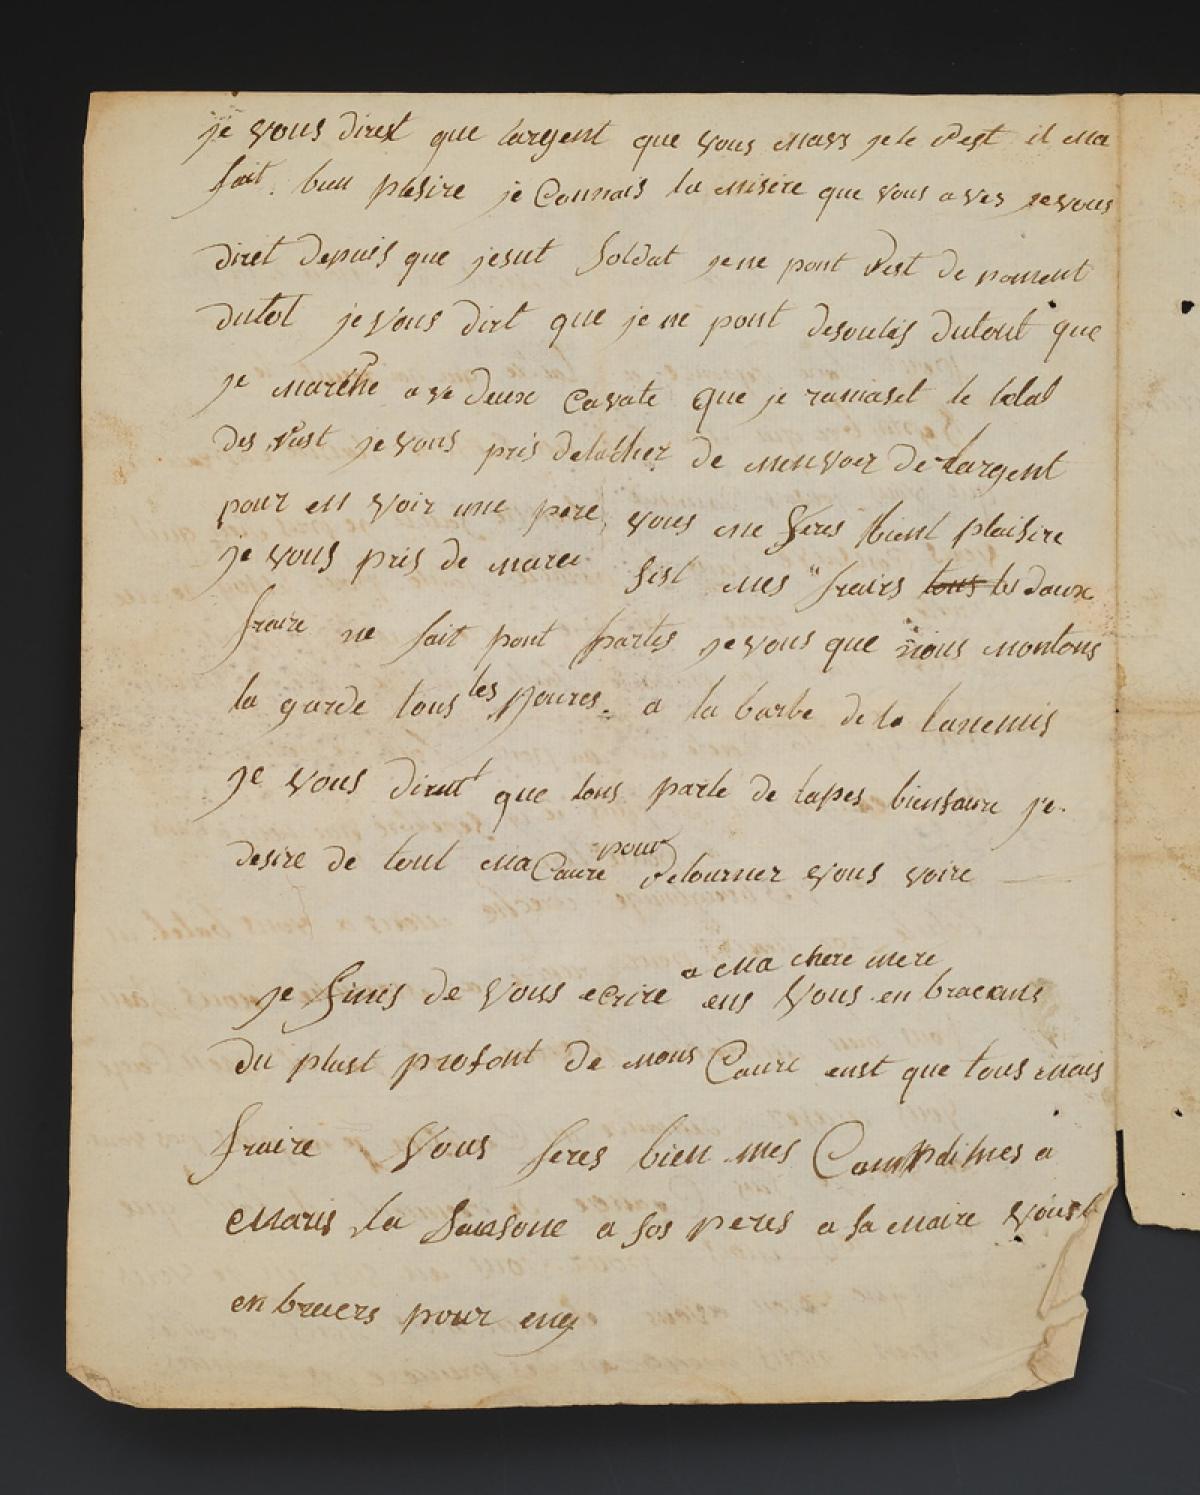 je vous diret que largent que vous mavs je le rest il ma
fait bien plesire je Connais la misere que vous aves je vous
diret depuis que jesut soldat je ne pont rest de poment
dutot je vous dirt que je ne pont desoulis dutout que
je marche ave deux Cavate que je ramaset le lolal
des rust je vous pris delather de menvoer de largent
pour en voir une pere vous me feres bient plaisire
je vous pris de marer sist mes frairs tous les doux
fraire ne fait pont partis je vous que nous montons
la garde tous les joures a la barbe de la lanemis
je vous dirent que tons parle de lapes biensaure je
desire de tout ma Caure pour retourner vous voire
je finis de vous ecrire a ma chere mere ens vous en bracans
du plust profont de nous Caure enst que tous mais
fraire vous feres bien mes Complimes a
maris la sansone a sos peres a sa maire vous l
en bracers pour moy